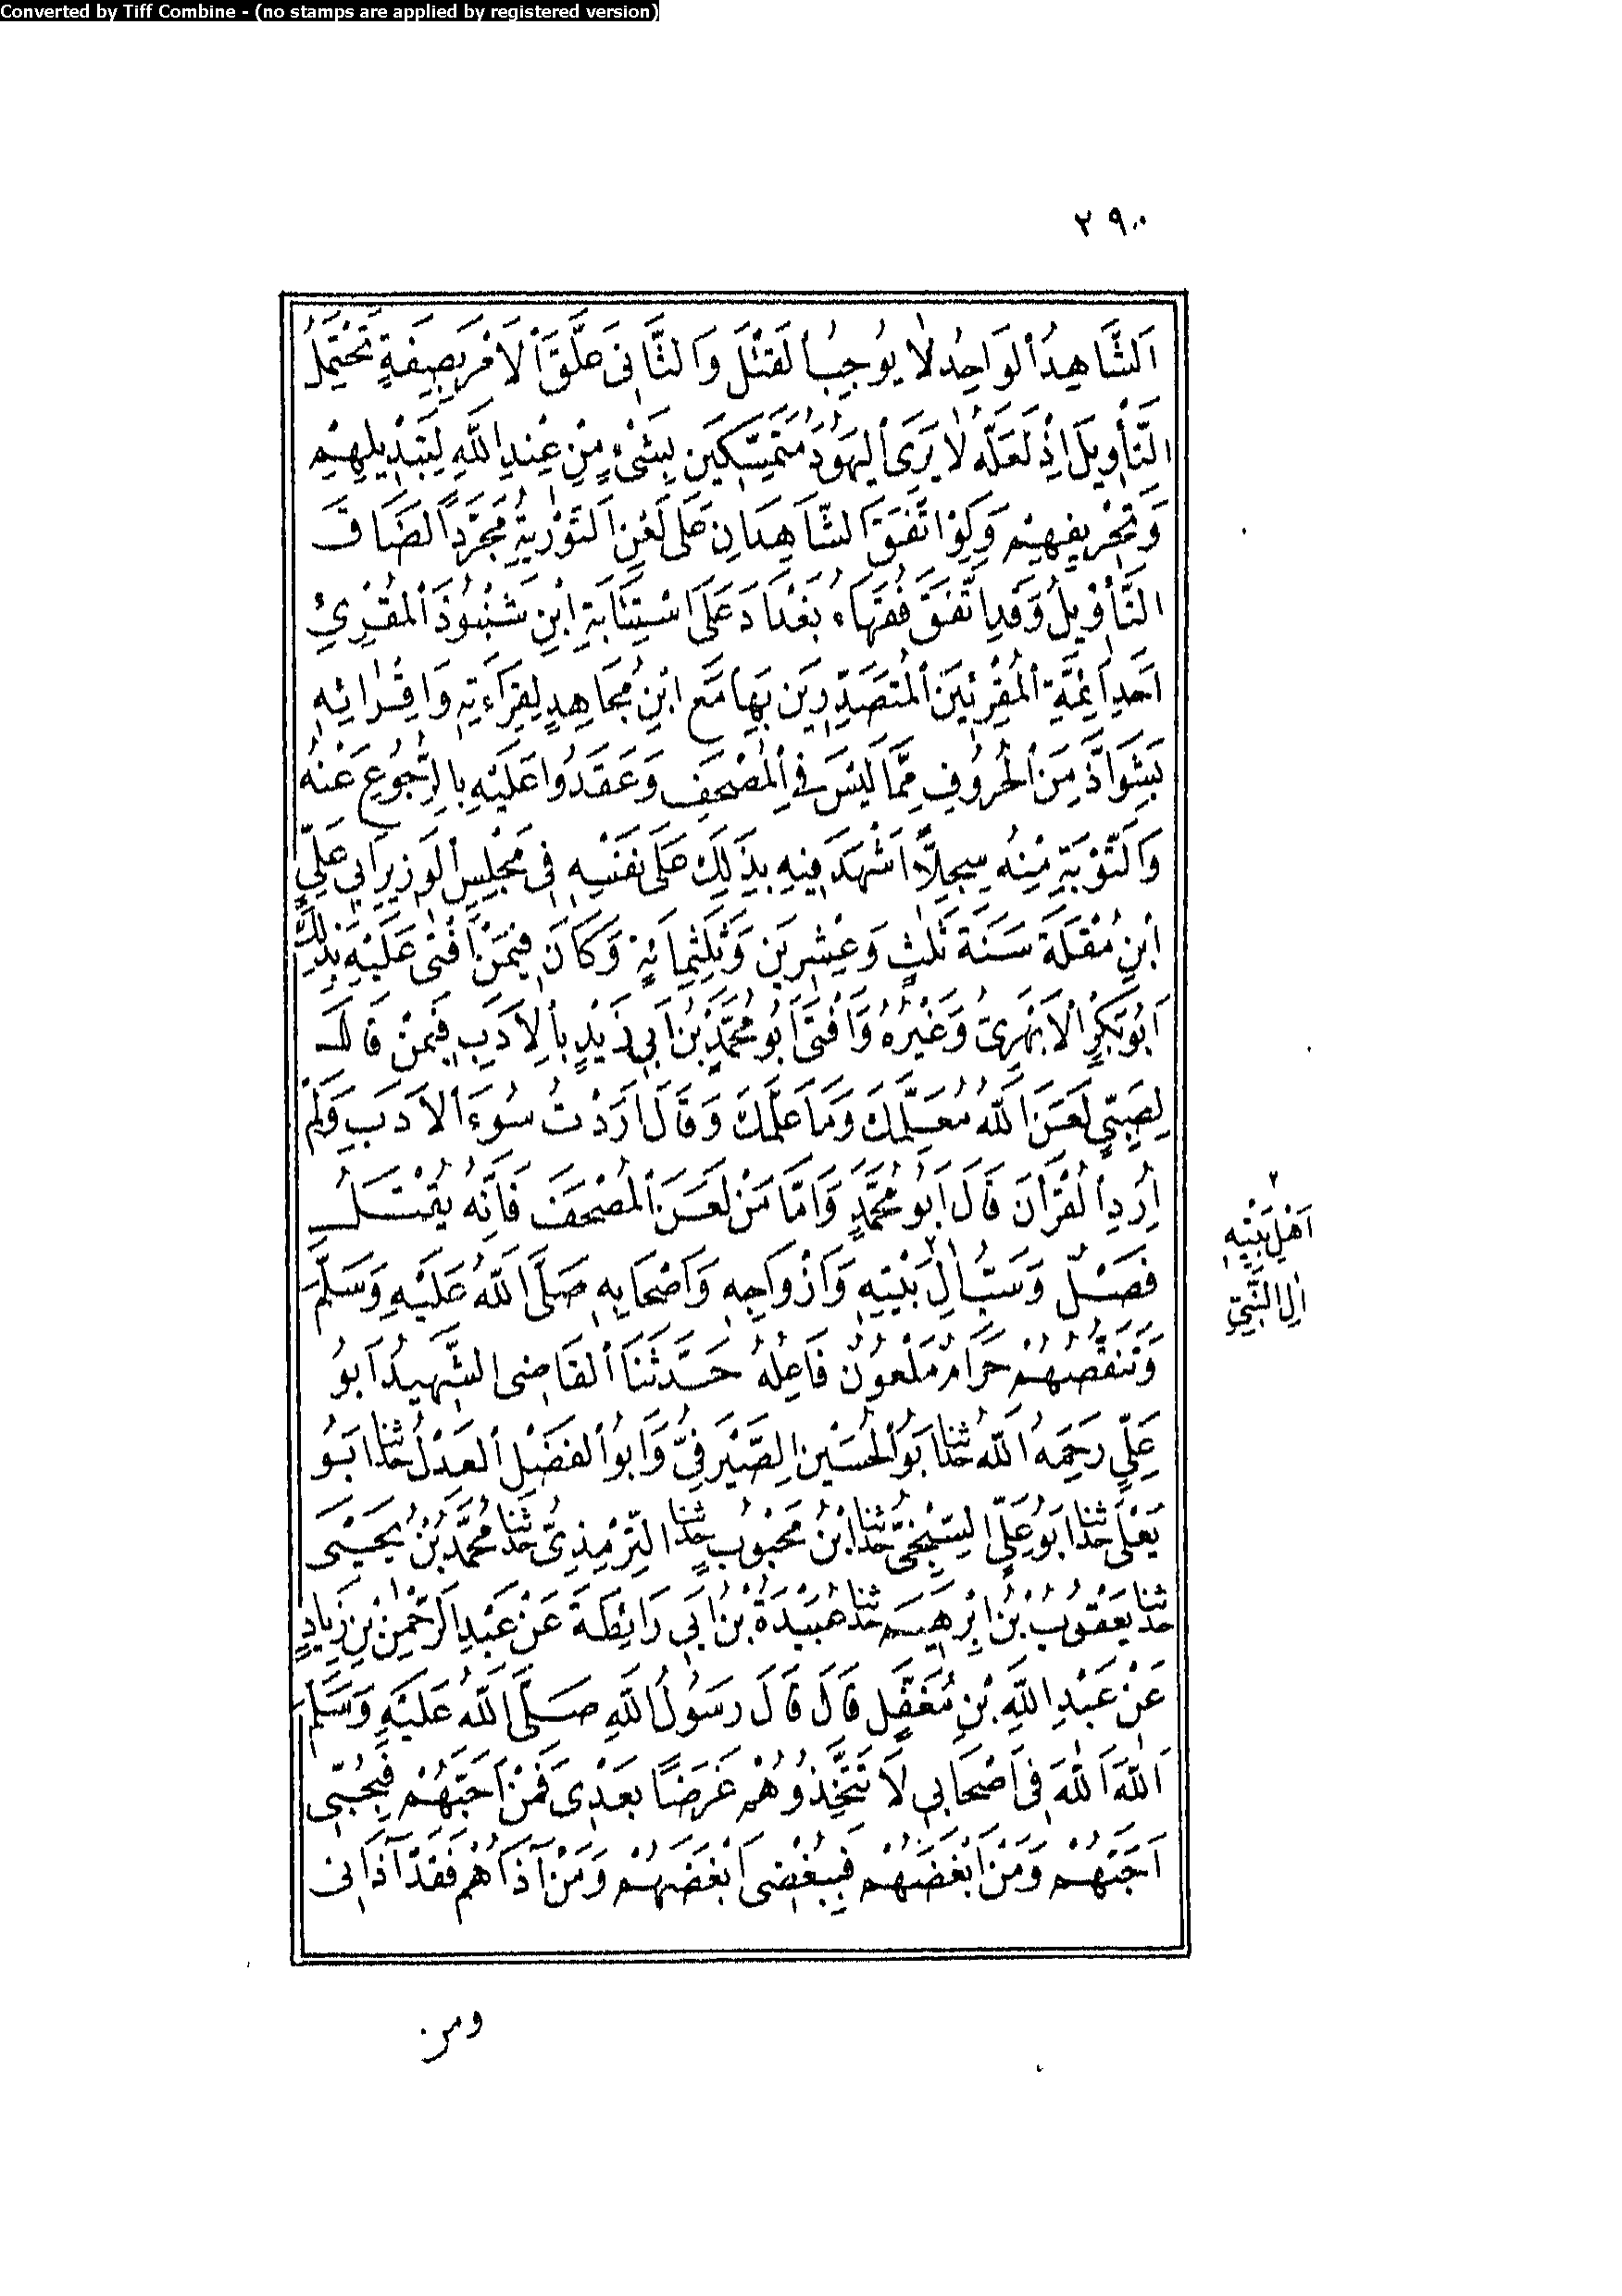 Converted by Tiff Combine - (no stamps are applied by registered version)
٢٩٠
اَلشَّاهِدُ الوَاحِدُ لاٰ يُوجِبُ القَتْلَ وَالثَّانِى عَلَّقَ الاَمْرَ بِصِفَةٍ تَحْتَمِلُ
التَّأْوِيلَ اِذْ لَعَلَّهُ لاٰ يَرَى اليَهُودَ مُتَمَسِّكِينَ بِشَىْءٍ مِنْ عِنْدِ اللهِ لِتَبْدِيلِهِمْ
وَتَحْرِيفِهِمْ وَلَوِ اتَّفَقَ الشَّاهِدَانِ عَلَى لَعْنِ التَّوْرٰيةِ مُجَرَّداً لَضَاقَ
التَّأْوِيلُ وَقَدِ اتَّفَقَ فُقَهَاءُ بَغْدَادَ عَلَى اسْتِتَابَةِ ابْنِ شَنْبُوذَ المُقْرِئِ
اَحَدِ اَئِمَّةِ المُقْرِئِينَ المُتَصَدِّرِينَ بِهَا مَعَ ابْنِ مُجَاهِدٍ لِقِرَاءَتِهِ وَاِقْرَائِهِ
بِشَوَاذَّ مِنَ الحُرُوفِ مِمَّا لَيْسَ فِى المُصْحَفِ وَعَقَدُوا عَلَيْهِ بِالرُّجُوعِ عَنْهُ
وَالتَّوْبَةِ مِنْهُ سِجِلاًّ اَشْهَدَ فِيهِ بِذٰلِكَ عَلَى نَفْسِهِ فِى مَجْلِسِ الوَزِيرِ اَبِى عَلِىِّ
ابْنِ مُقْلَةَ سَنَةَ ثَلٰثٍ وَعِشْرِينَ وَثَلٰثِمِائَةٍ وَكَانَ فِيمَنْ اَفْتَى عَلَيْهِ بِذٰلِكَ
اَبُو بَكْرٍ الاَبْهَرِىُّ وَغَيْرُهُ وَاَفْتَى اَبُو مُحَمَّدِ بْنُ اَبِى زَيْدٍ بِالاَدَبِ فِيمَنْ قَالَ
لِصَبِىٍّ لَعَنَ اللهُ مُعَلِّمَكَ وَمَا عَلَّمَكَ وَقَالَ اَرَدْتُ سُوءَ الاَدَبِ وَلَمْ
اُرِدِ القُرْاٰنَ قَالَ اَبُو مُحَمَّدٍ وَاَمَّا مَنْ لَعَنَ المُصْحَفَ فَاِنَّهُ يُقْتَلُ
فَصْلٌ وَسَبُّ اٰلِ بَيْتِهِ وَاَزْوَاجِهِ وَاَصْحَابِهِ صَلَّى اللهُ عَلَيْهِ وَسَلَّمَ
وَتَنَقُّصُهُمْ حَرَامٌ مَلْعُونٌ فَاعِلُهُ حَدَّثَنَا القَاضِى الشَّهِيدُ اَبُو
عَلِىٍّ رَحِمَهُ اللهُ حدثنا اَبُو الحُسَيْنِ الصَّيْرَفِىُّ وَاَبُو الفَضْلِ العَدْلُ حدثنا اَبُو
يَعْلَى حدثنا اَبُو عَلِىٍّ السِّنْجِىُّ حدثنا ابْنُ مَحْبُوبٍ حدثنا التِّرْمِذِىُّ حدثنا مُحَمَّدُ بْنُ يَحْيَى
حدثنا يَعْقُوبُ بْنُ اِبْرٰهِيمَ حدثنا عُبَيْدَةُ بْنُ اَبِى رَائِطَةَ عَنْ عَبْدِ الرَّحْمٰنِ بْنِ زِيَادٍ
عَنْ عَبْدِ اللهِ بْنِ مُغَفَّلٍ قَالَ قَالَ رَسُولُ اللهِ صَلَّى اللهُ عَلَيْهِ وَسَلَّمَ
اَللهَ اَللهَ فِى اَصْحَابِى لاَ تَتَّخِذُوهُمْ غَرَضًا بَعْدِى فَمَنْ اَحَبَّهُمْ فَبِحُبِّى
اَحَبَّهُمْ وَمَنْ اَبْغَضَهُمْ فَبِبُغْضِى اَبْغَضَهُمْ وَمَنْ آذَاهُمْ فَقَدْ آذَانِى
٢
اَهْلِ بَيْتِهِ
اٰلِ النَّبِىِّ
ومن